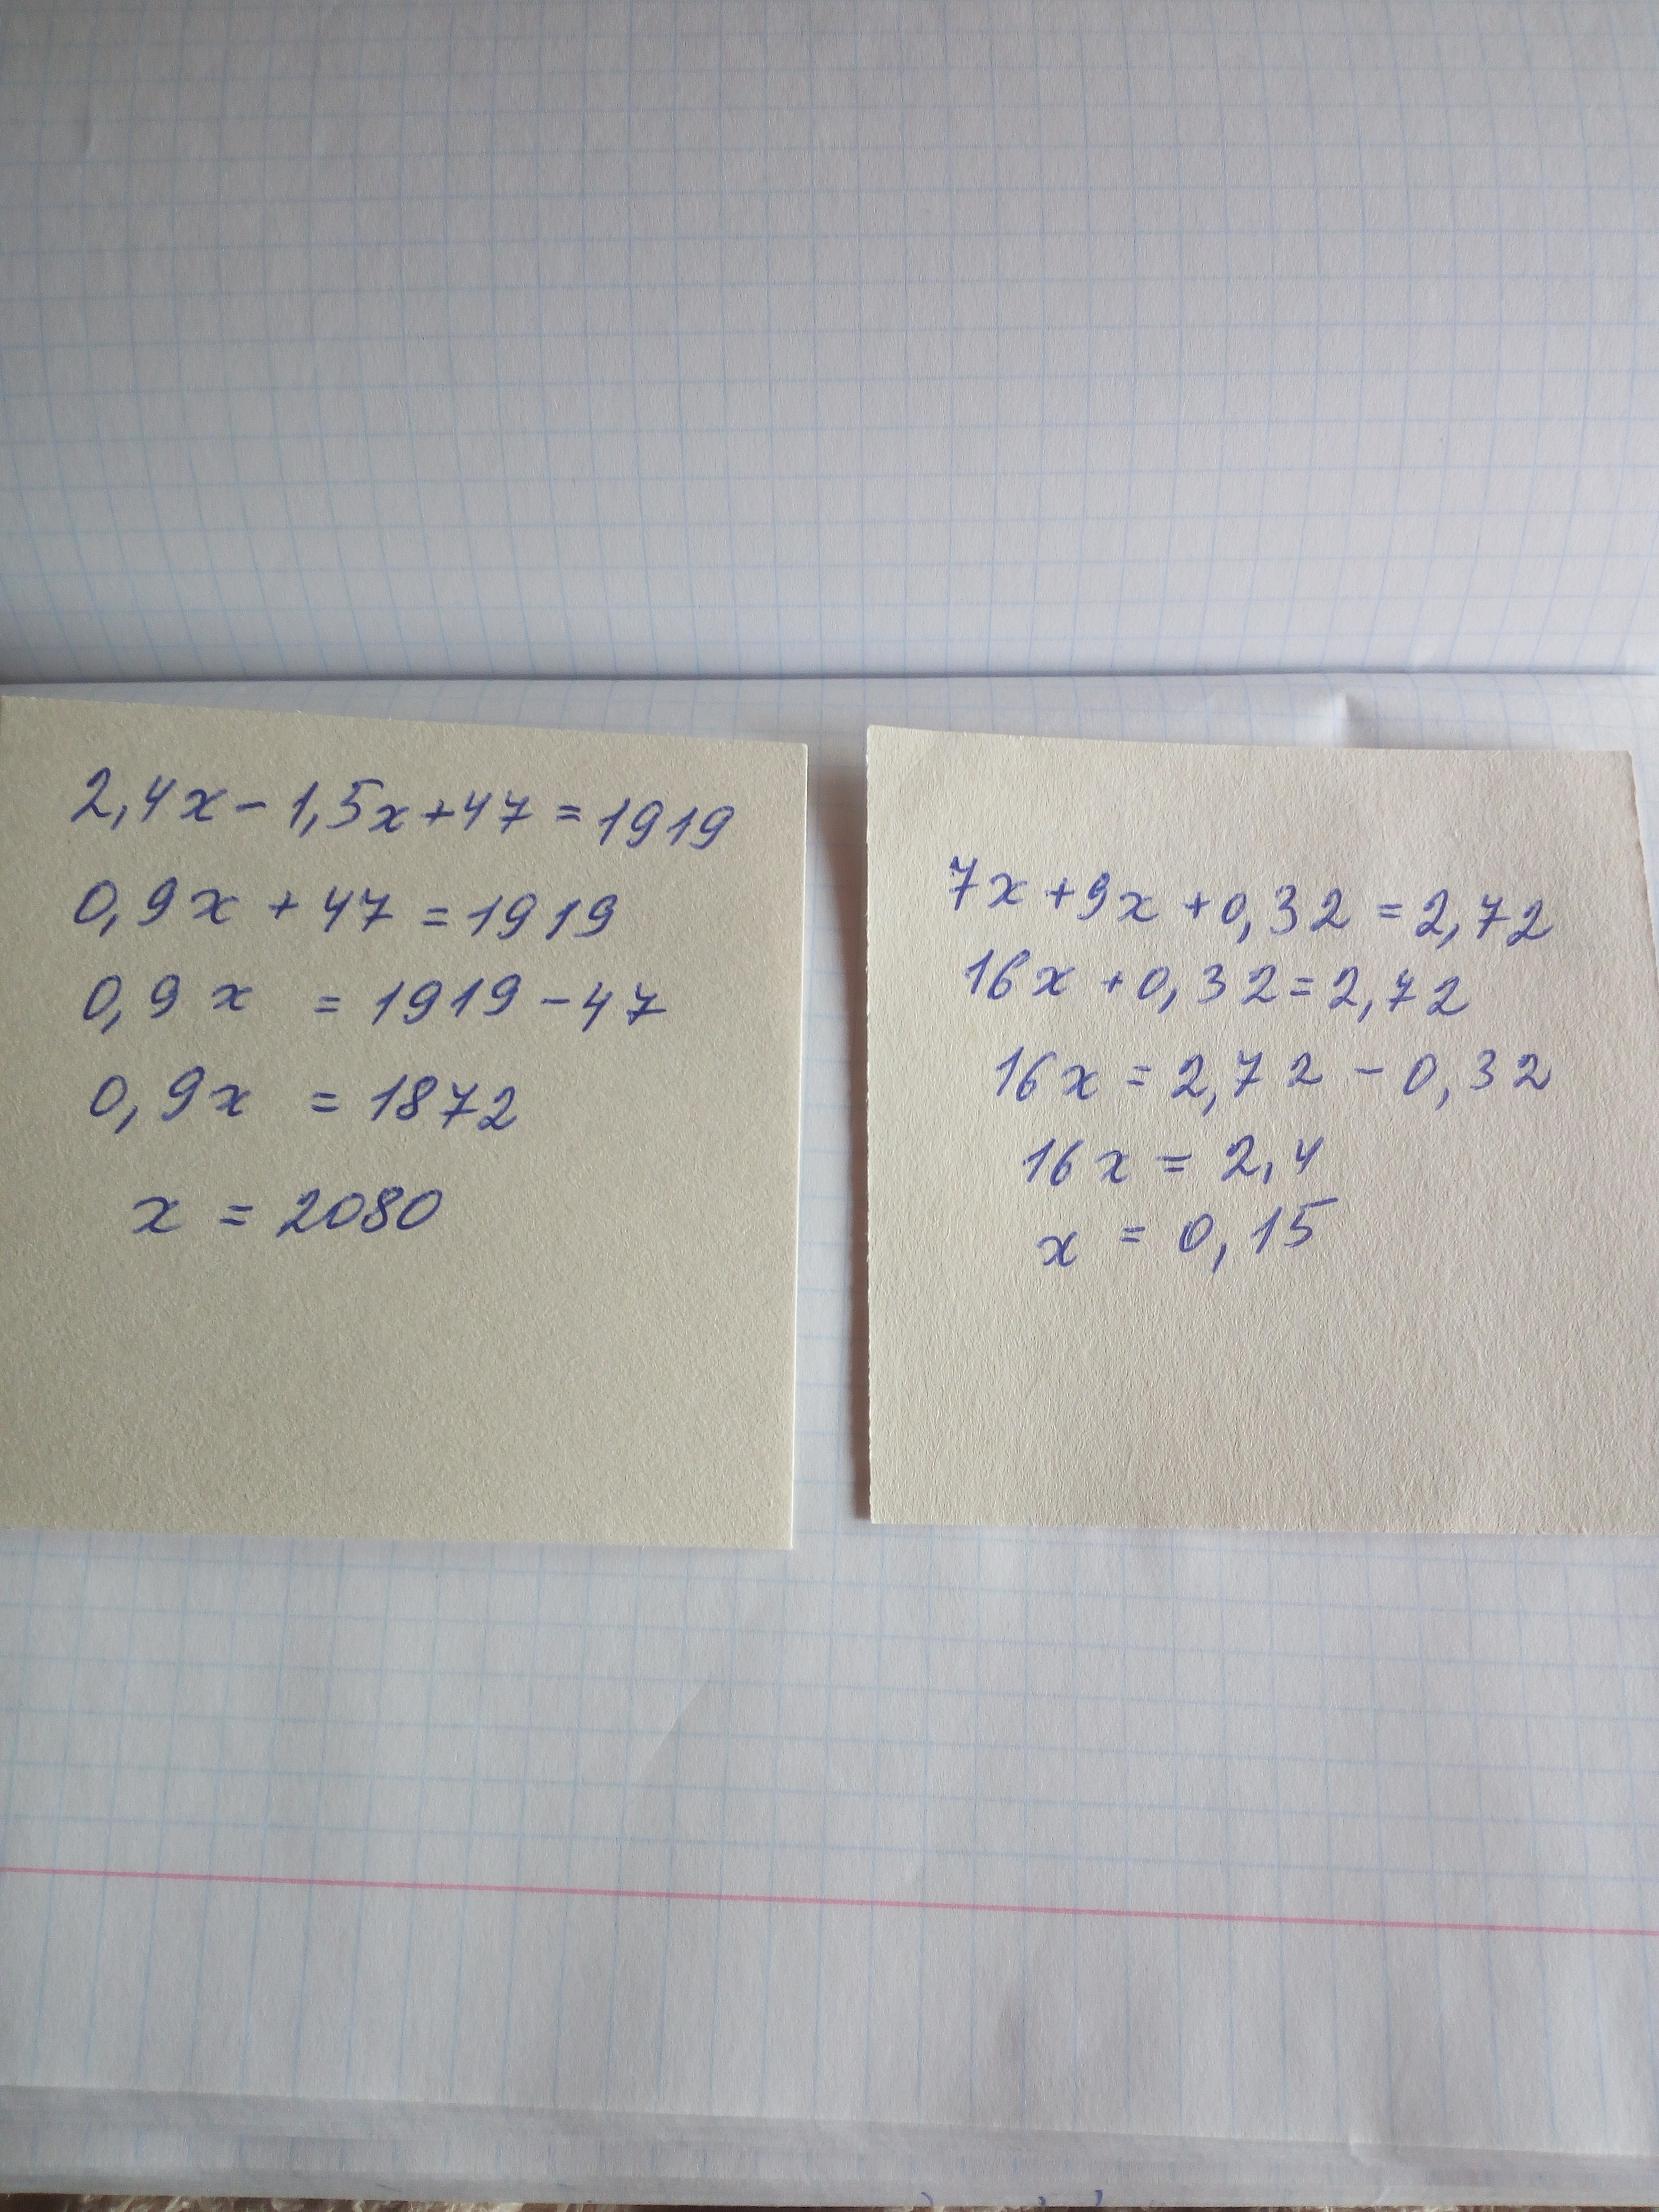 2,4x-1,5x+47=1919
0,9x+47=1919
0,9x=1919-47
0,9x=1872
x=2080
7x+9x+0,32=2,72
16x+0,32=2,72
16x=2,72-0,32
16x=2,4
x=0,15